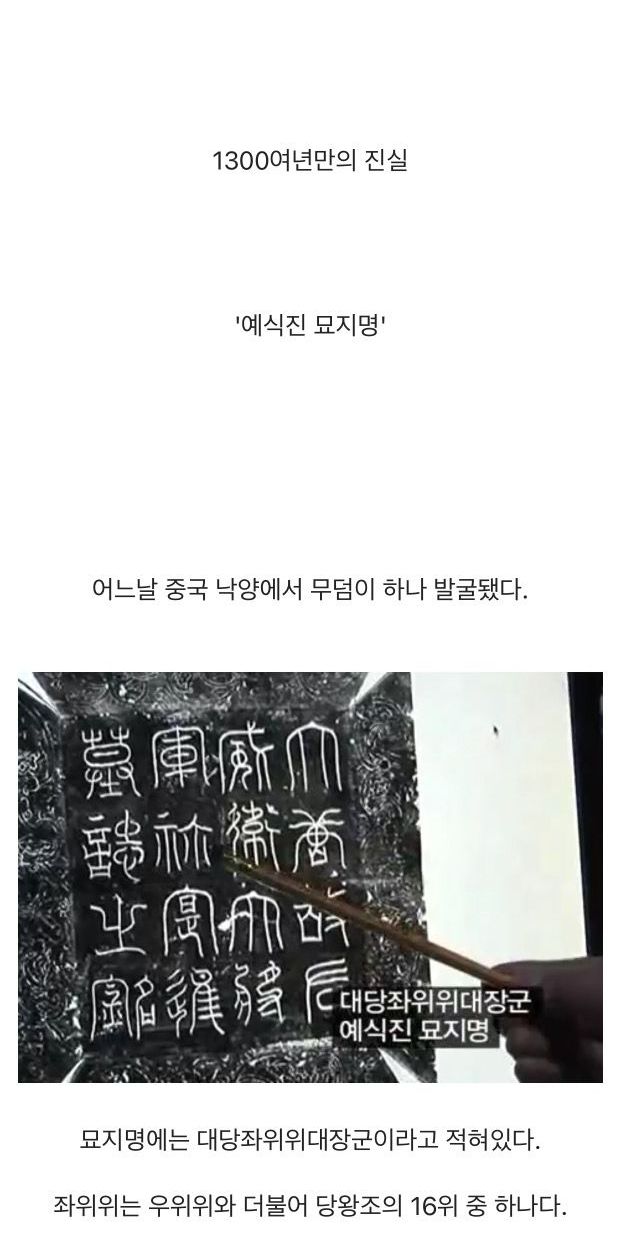 1300여년만의 진실
'예식진 묘지명'
어느날 중국 낙양에서 무덤이 하나 발굴됐다.
大唐故左
威衛大將
軍祢寔進
墓誌之銘
대당좌위위대장군
예식진 묘지명
묘지명에는 대당좌위위대장군이라고 적혀있다.
좌위위는 우위위와 더불어 당왕조의 16위 중 하나다.